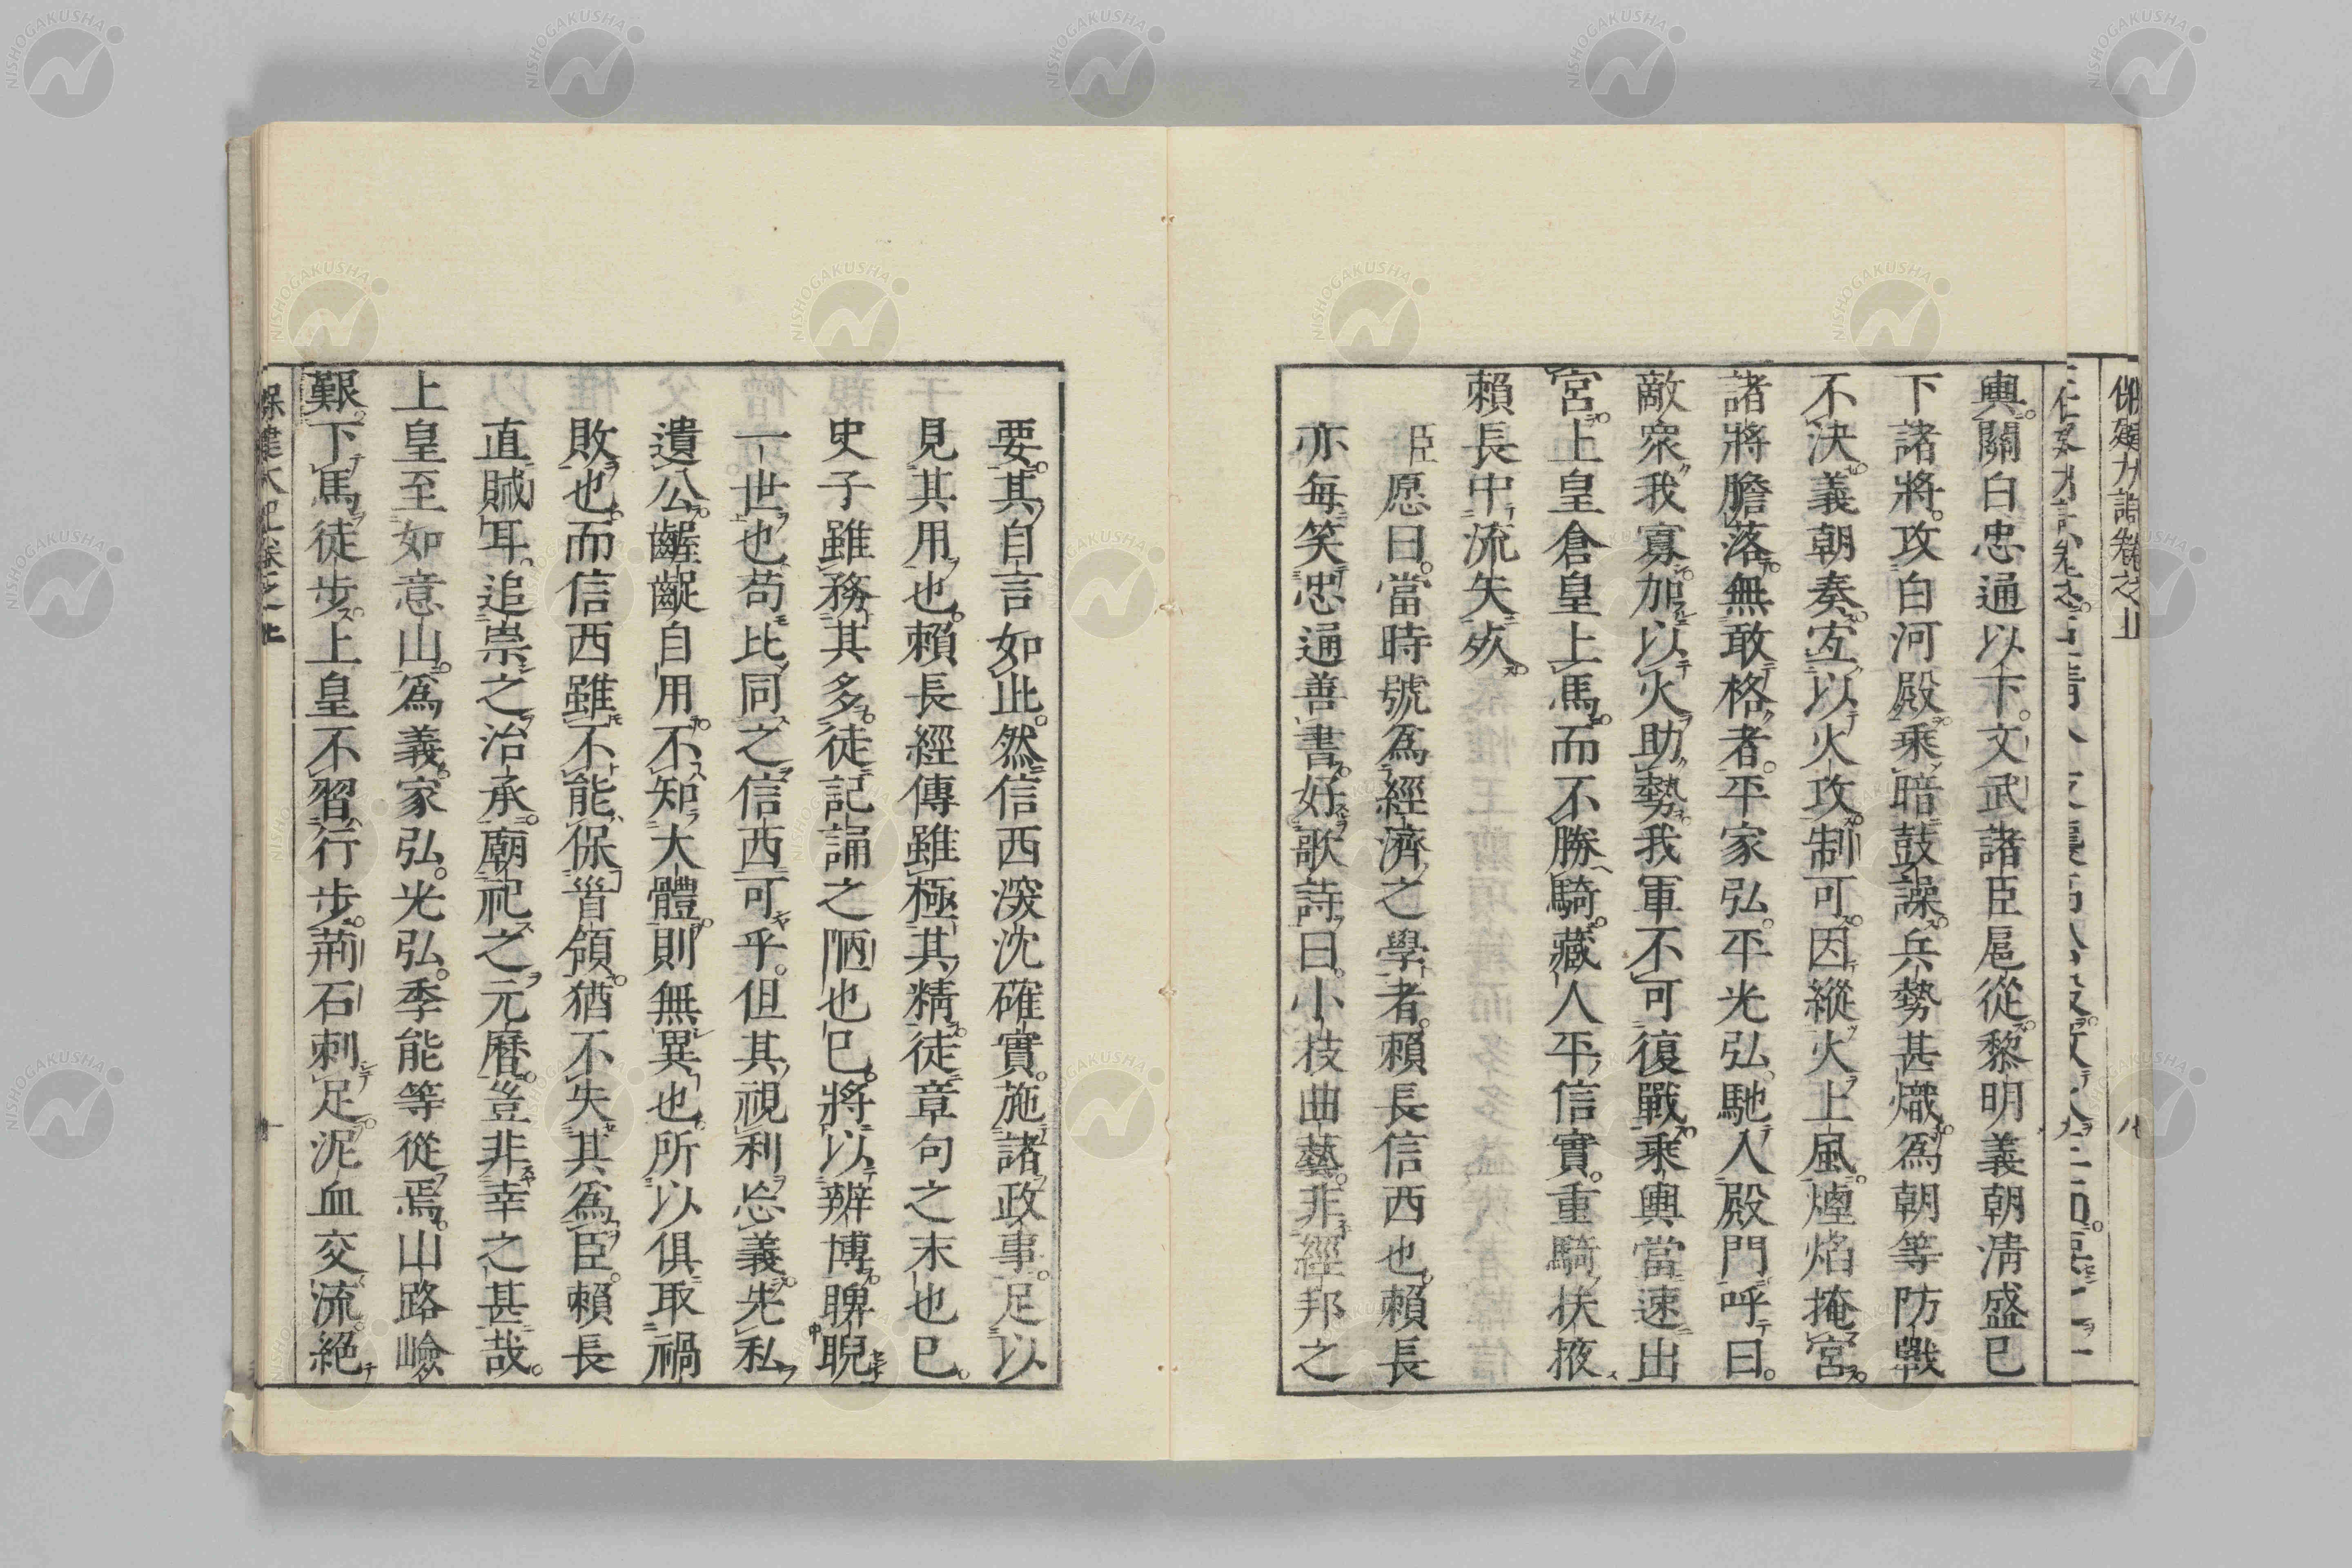 輿關白忠通以下文武諸臣扈從黎明義朝淸盛已
下諸將攻白河殿乘暗鼓譟兵勢甚熾爲朝等防戰
不決義朝奏宐以火攻制可因縱火上風煙焰掩宮
諸將膽落無敢格者平家弘平光弘馳入殿門呼曰
敵衆我寡加以火助勢我軍不可復戰乘輿當速出
宮上皇倉皇上馬而不勝騎藏人平信實重騎扶掖
賴長中流矢歿
臣愿曰當時號爲經濟之學者賴長信西也賴長
亦每笑忠通善書好歌詩曰小枝曲藝非經邦之
要其自言如此然信西深沈確實施諸政事足以
見其用也賴長經傳雖極其精徒章句之末也已
史子雖務其多徒記誦之陋也已將以辨博睥睨
一世也苟比同之信西可乎但其視利忘義先私
遺公齷齪自用不知大體則無異也所以俱取禍
敗也而信西雖不能保首領猶不失其爲臣賴長
直賊耳追崇之治承廟祀之元曆豈非幸之甚哉
上皇至如意山爲義家弘光弘季能等從焉山路嶮
艱下馬徒步上皇不習行步荊石刺足泥血交流絕
保建大記卷之上
NISHOGAKUSHA